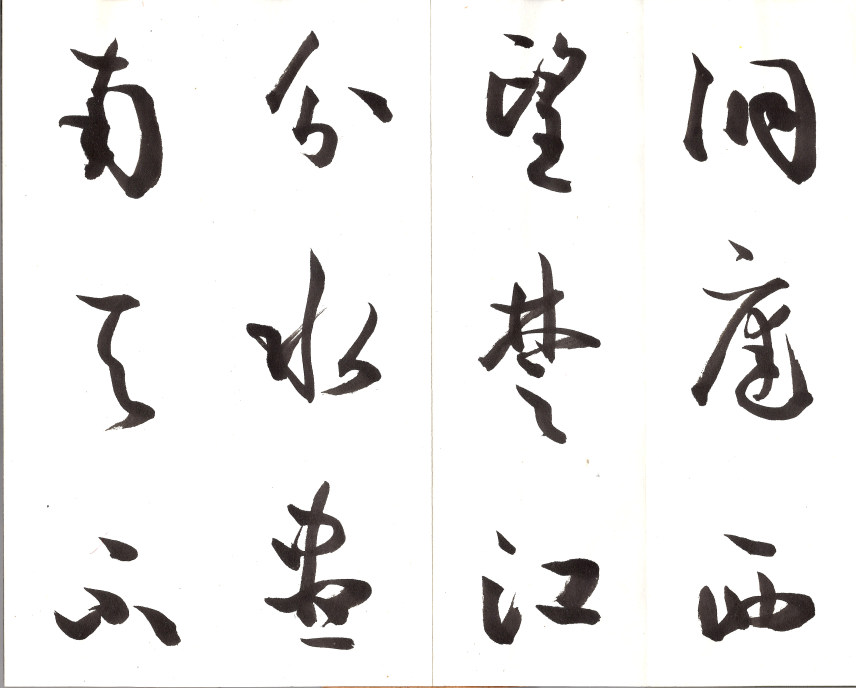 洞庭西
望楚江
分水盡
南天不